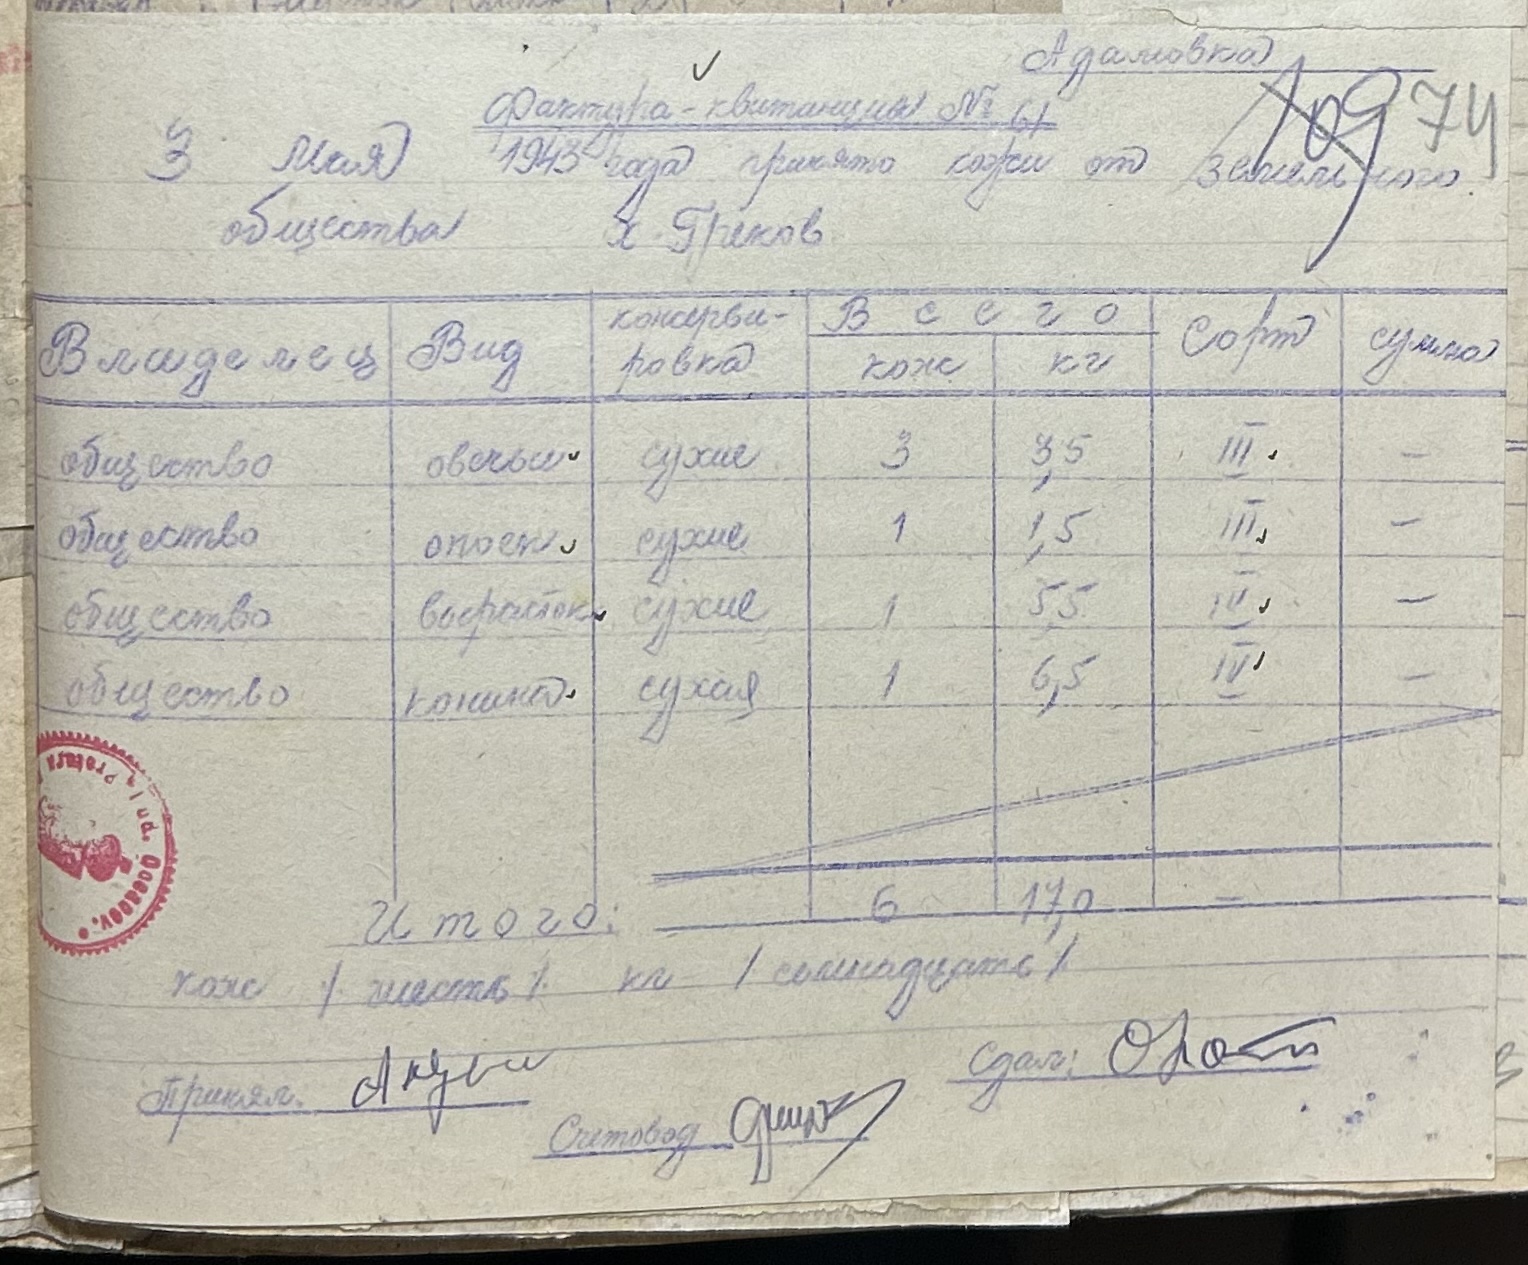 Адамовка
Фактура-квитанция № 61
109 74
3 Мая 1943 года принято кожи от земельного
общества х. Греков
Владелец Вид консерви- Всего Сорт сумма
ровка кож кг
общество овечьи сухие 3 3,5 III -
общество опоек сухие 1 1,5 III -
общество выросток сухие 1 5,5 IV -
общество конина сухая 1 6,5 IV -
Итого: 6 17,0 -
кож /шесть/ кг /семнадцать/
Принял: Сдал:
Счетовод
Jud. Oceacov.